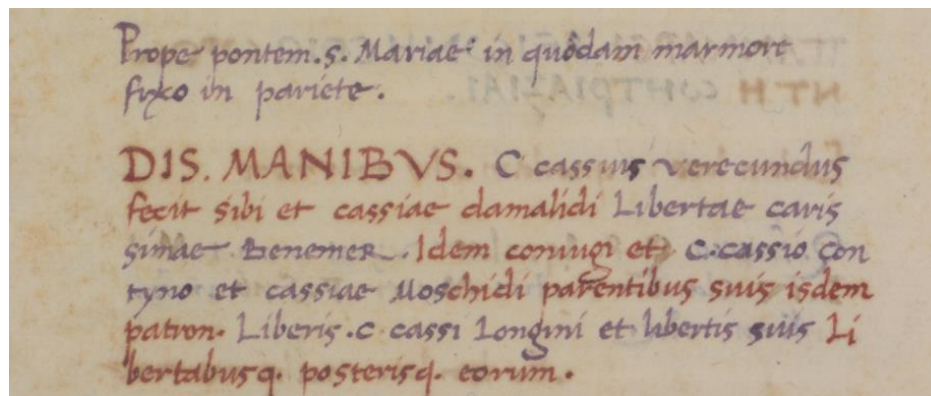 Prope pontem. s. Mariae in quodam marmore
fixo in pariete.
DIS. MANIBVS. C cassius verecundus
fecit sibi et cassiae damalidi Libertae caris
simae Benemer. Idem coniugi et C. cassio con
tyno et cassiae Moschidi parentibus suis isdem
patron. Liberis. C cassi Longini et libertis suis Li
bertabusq. posterisq. eorum.